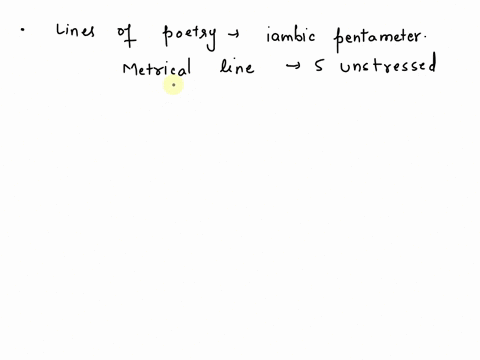 • Lines of poetry → iambic pentameter.
Metrical line → 5 unstressed